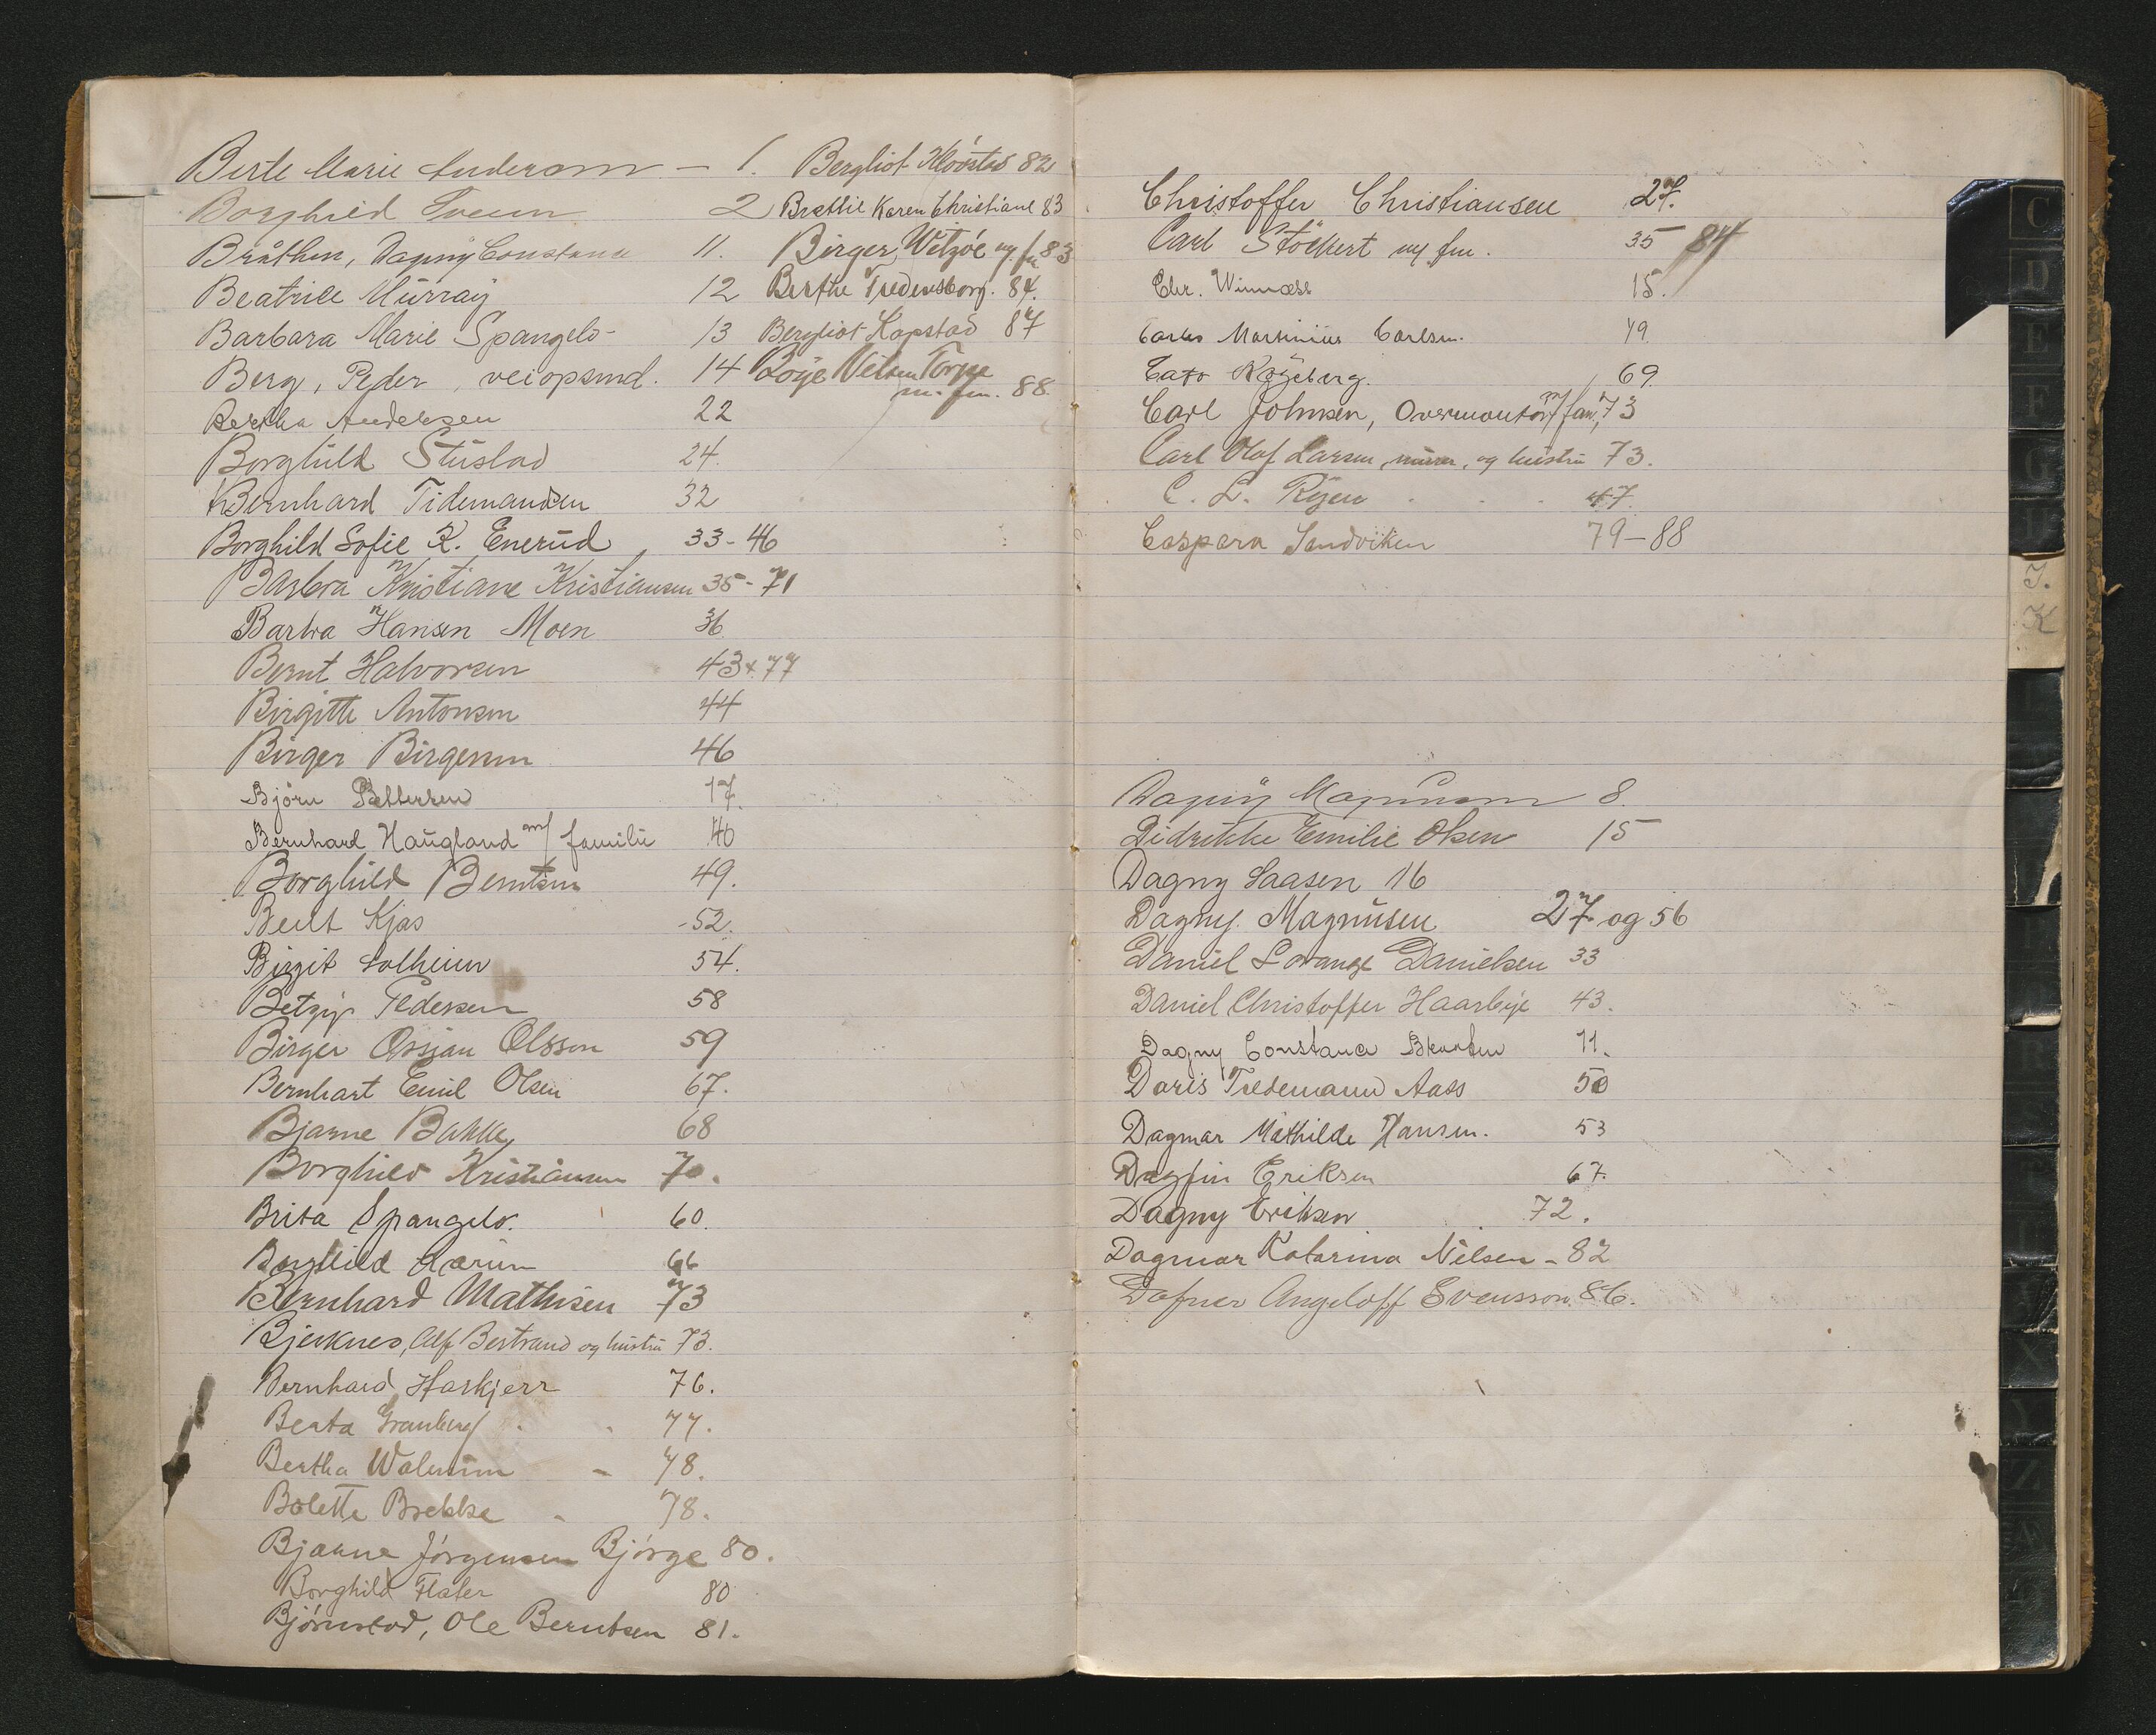 Berte Marie Anderson - 1.
Borghild Sveen 2
Bråthen, Dagny Constance 11.
Beatrice Murray 12
Barbara Marie Spangelo- 13
Berg, Peder, veiopsynd. 14
Bertha Andersen 22
Borghild Stuslad 24.
Bernhard Tidemandsen 32
Borghild Sofie K. Enerud 33-46
Barbra Kristiane Kristiansen 35-71
Barbra Hansen Moen 36
Bernt Halvorsen 43 & 77
Birgitte Antonsen 44
Birger Birgersen 46
Björn Pettersen 17.
Bernhard Haugland m/ familie 40
Borghild Berntsen 49.
Berit Kjos 52.
Birgit Solheim 54.
Betzy Pedersen 58
Birger Ossian Olsson 59
Bernhart Emil Olsen 67.
Bjarne Bakke 68
Borghild Kristiansen 70.
Brita Spangelo. 60.
Borghild 66
Bernhard Mathisen 73
Bjerknes, Alf Bertrand og hustru 73.
Bernhard Haskjerr 76.
Berta Granberg 77.
Bertha Walmum - 78.
Bolette Brekke - 78.
Bjarne Jörgensen Bjørge 80.
Borghild Flater 80
Bjørnstad, Ole Berntsen 81.
Bergliot Kløvstad 82
Brættil Karen Christiane 83
Birger Vetzóe m/ fm 83
Berthe Fredensborg. 84.
Bergliot Kopstad 87
Böije Nelsen Torpe
m. fm. 88.
Christoffer Christiansen 27.
Carl Stöckert m/ fm. 35 84
Chr. Winnæss 15.
Carles Martinius Carlsen. 49
Cato Köjeberg. 69.
Carl Johnsen, Overmontör m/ fam, 73
Carl Olof Larsen, murer, og hustru 73.
C. L. Röyen 47.
Caspara Sandviken 79-88
Dagny Magnusen 8.
Didrikke Emilie Olsen 15
Dagny Saasen 16
Dagny. Magnusen 27 og 56
Daniel Lorange Danielsen 33
Daniel Christoffer Haarbye 43.
Dagny Constance 11.
Doris Tidemann Aass 50
Dagmar Mathilde Hansen. 53
Dagfin Eriksen 67.
Dagny Eriksen 72.
Dagmar Katarina Nilsen - 82
Dafner Angeloff Svensson. 86.
C
D
E
F
G
H
J.
K
X
Y
Z